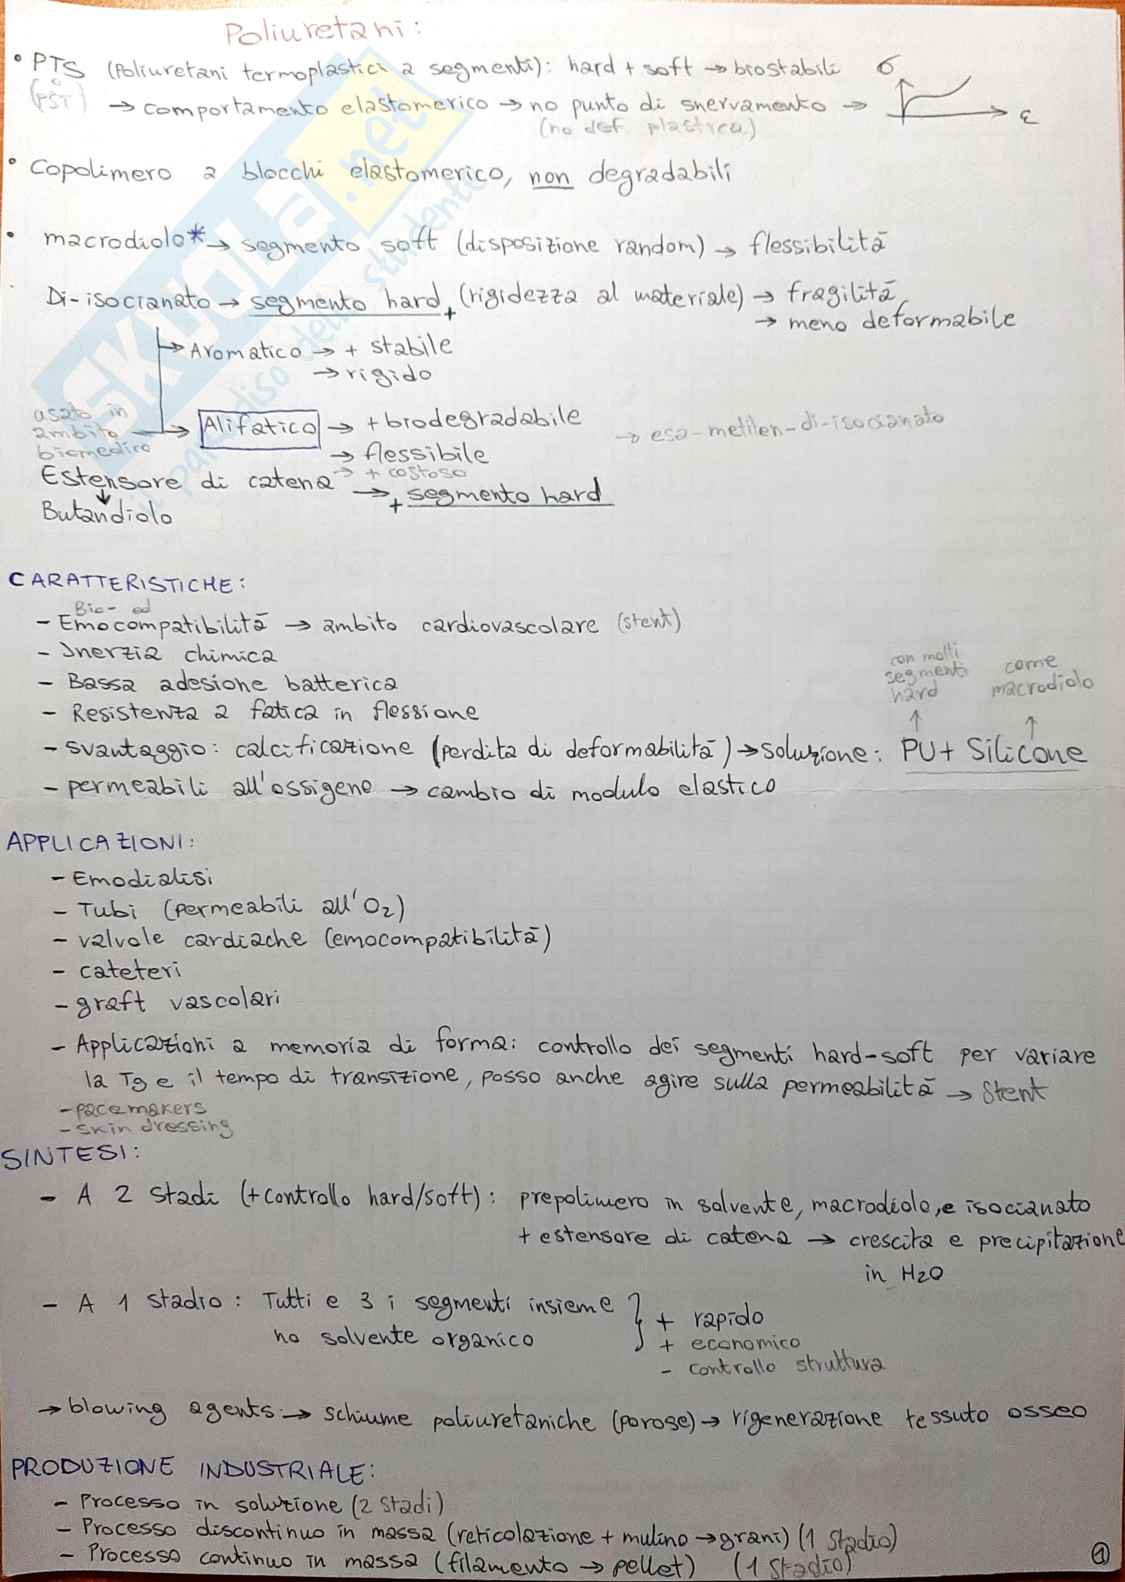 Poliuretani:
• PTS (Poliuretani termoplastici a segmenti): hard + soft → biostabili σ
(o PST) → comportamento elastomerico → no punto di snervamento → ε
(no def. plastica)
• Copolimero a blocchi elastomerico, non degradabili
• macrodiolo* → segmento soft (disposizione random) → flessibilità
Di-isocianato → segmento hard + (rigidezza al materiale) → fragilità
→ meno deformabile
→ Aromatico → + stabile
→ rigido
usato in ambito biomedico → Alifatico → + biodegradabile → esa-metilen-di-isocianato
→ flessibile
→ + costoso
Estensore di catena → + segmento hard
↓
Butandiolo
CARATTERISTICHE:
Bio- ed
- Emocompatibilità → ambito cardiovascolare (stent)
- Inerzia chimica
- Bassa adesione batterica
- Resistenza a fatica in flessione
con molti segmenti hard
come macrodiolo
- svantaggio: calcificazione (perdita di deformabilità) → soluzione: PU + Silicone
- permeabili all'ossigeno → cambio di modulo elastico
APPLICAZIONI:
- Emodialisi
- Tubi (permeabili all'O2)
- valvole cardiache (emocompatibilità)
- cateteri
- graft vascolari
- Applicazioni a memoria di forma: controllo dei segmenti hard-soft per variare
la Tg e il tempo di transizione, posso anche agire sulla permeabilità → Stent
- pacemakers
- skin dressing
SINTESI:
- A 2 stadi (+ controllo hard/soft): prepolimero in solvente, macrodiolo, e isocianato
+ estensore di catena → crescita e precipitazione
in H2O
- A 1 stadio: Tutti e 3 i segmenti insieme } + rapido
no solvente organico + economico
- controllo struttura
→ blowing agents → schiume poliuretaniche (porose) → rigenerazione tessuto osseo
PRODUZIONE INDUSTRIALE:
- Processo in soluzione (2 Stadi)
- Processo discontinuo in massa (reticolazione + mulino → grani) (1 Stadio)
- Processo continuo in massa (filamento → pellet) (1 Stadio)
1
SKUOLA.net
il paradiso dello studente